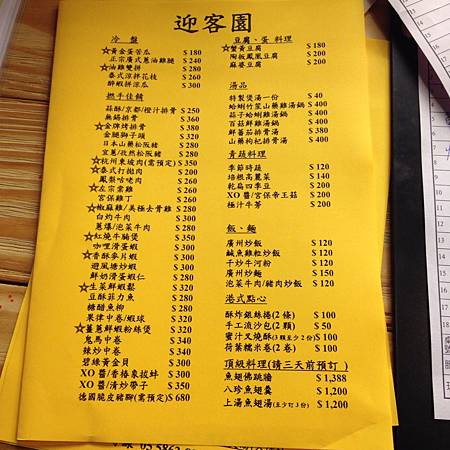 迎客園
冷 盤
☆黃金蛋苦瓜 $ 180
正宗廣式蔥油雞腿 $ 240
☆油雞雙拼 $ 280
泰式涼拌花枝 $ 260
醉蝦拼涼瓜 $ 300
拠手佳餚
蒜酥/京都/橙汁排骨 $ 250
無錫排骨 $ 380
☆金牌烤排骨 $ 380
金腿獅子頭 $ 320
日本山藥松阪豬 $ 320
宜蔥/孜然松阪豬 $ 320
☆杭州東坡肉(需預定) $ 350
☆泰式打拋肉 $ 260
鳳梨咕咾肉 $ 260
☆左宗棠雞 $ 260
宮保雞丁 $ 260
☆椒麻雞/美極去骨雞 $ 280
白灼牛肉 $ 300
蔥爆/泡菜牛肉 $ 280
☆紅燒牛腩煲 $ 350
咖哩滑蛋蝦 $ 350
☆香酥麥片蝦 $ 350
避風塘炒蝦 $ 300
鮮奶滑蛋蝦仁 $ 280
☆生菜鮮蝦鬆 $ 320
豆酥菲力魚 $ 280
糖醋魚柳 $ 280
果律中卷/蝦球 $ 320
☆薑蔥鮮蝦粉絲煲 $ 320
鬼馬中卷 $ 340
辣炒中卷 $ 340
碧綠黃金貝 $ 300
XO 醬/香椿象拔蚌 $ 350
XO 醬/清炒帶子 $ 350
德國脆皮豬腳(需預定) $ 680
豆腐、蛋 料理
☆蟹黃豆腐 $ 180
陶板鳳凰豆腐 $ 200
麻婆豆腐 $ 200
湯品
特製煲湯一份 $ 400
蛤蜊竹笙山藥雞湯鍋 $ 400
蒜子蛤蜊雞湯鍋 $ 400
百菇鮮雞湯鍋 $ 400
鮮蕃茄排骨湯 $ 400
山藥枸杞排骨湯 $ 400
青蔬料理
季節時蔬 $ 120
培根高麗菜 $ 140
乾扁四季豆 $ 200
XO 醬/宮保帝王菇 $ 200
極汁牛蒡 $ 200
飯、麵
廣州炒飯 $ 120
鹹魚雞粒炒飯 $ 120
干炒牛河粉 $ 120
廣州炒麵 $ 150
泡菜牛肉/豬肉炒飯 $ 120
港式點心
酥炸銀絲捲(2 條) $ 100
手工流沙包(2 顆) $ 50
蜜汁叉燒酥(3顆至少2份) $ 100
荷葉糯米卷(2 卷) $ 100
頂級料理(請三天前預訂)
魚翅佛跳牆 $ 1,388
八珍魚翅羹 $ 1,200
上湯魚翅湯(至少訂3份) $ 1,200